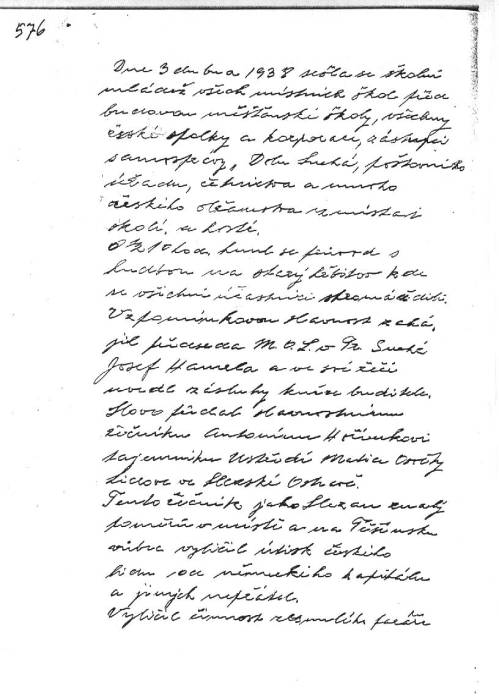 576
Dne 3 dubna 1938 sešla se školní
mládež všech místních škol před
budovou měšťanské školy, všechny
české spolky a korporace, zástupci
samosprávy, Dolu Suchá, poštovního
úřadu, četnictva a mnoho
českého občanstva z místa i
okolí a hosté.
O ½ 10 hod. hnul se průvod s
hudbou na starý hřbitov kde
se všichni účastníci shromáždili.
Vzpomínkovou slavnost zahá,
jil předseda M.O.L. v Pr. Suché
Josef Hamela a ve své řeči
uvedl zásluhy kněze buditele.
Slovo předal slavnostnímu
řečníku Antonínu
tajemníku Ústředí Matice Osvěty
Lidové ve Slezské Ostravě.
Tento řečník, jako Slezan znalý
poměrů v místě a na Těšínsku
vylíčil útisk českého
lidu od německého kapitálu
a jiných nepřátel.
Vylíčil činnost zesnulého faráře